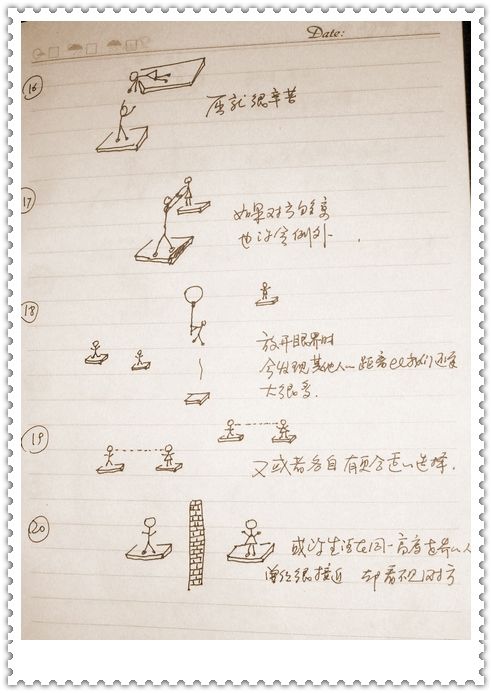 Date:
16
屈就很辛苦
17
如果对方够宽
也许会例外.
18
放开眼界时
会发现其他人的距离比我们还要
大很多.
19
又或者各自有更合适的选择.
20
或许生活在同一高度
很接近 却看不见对方